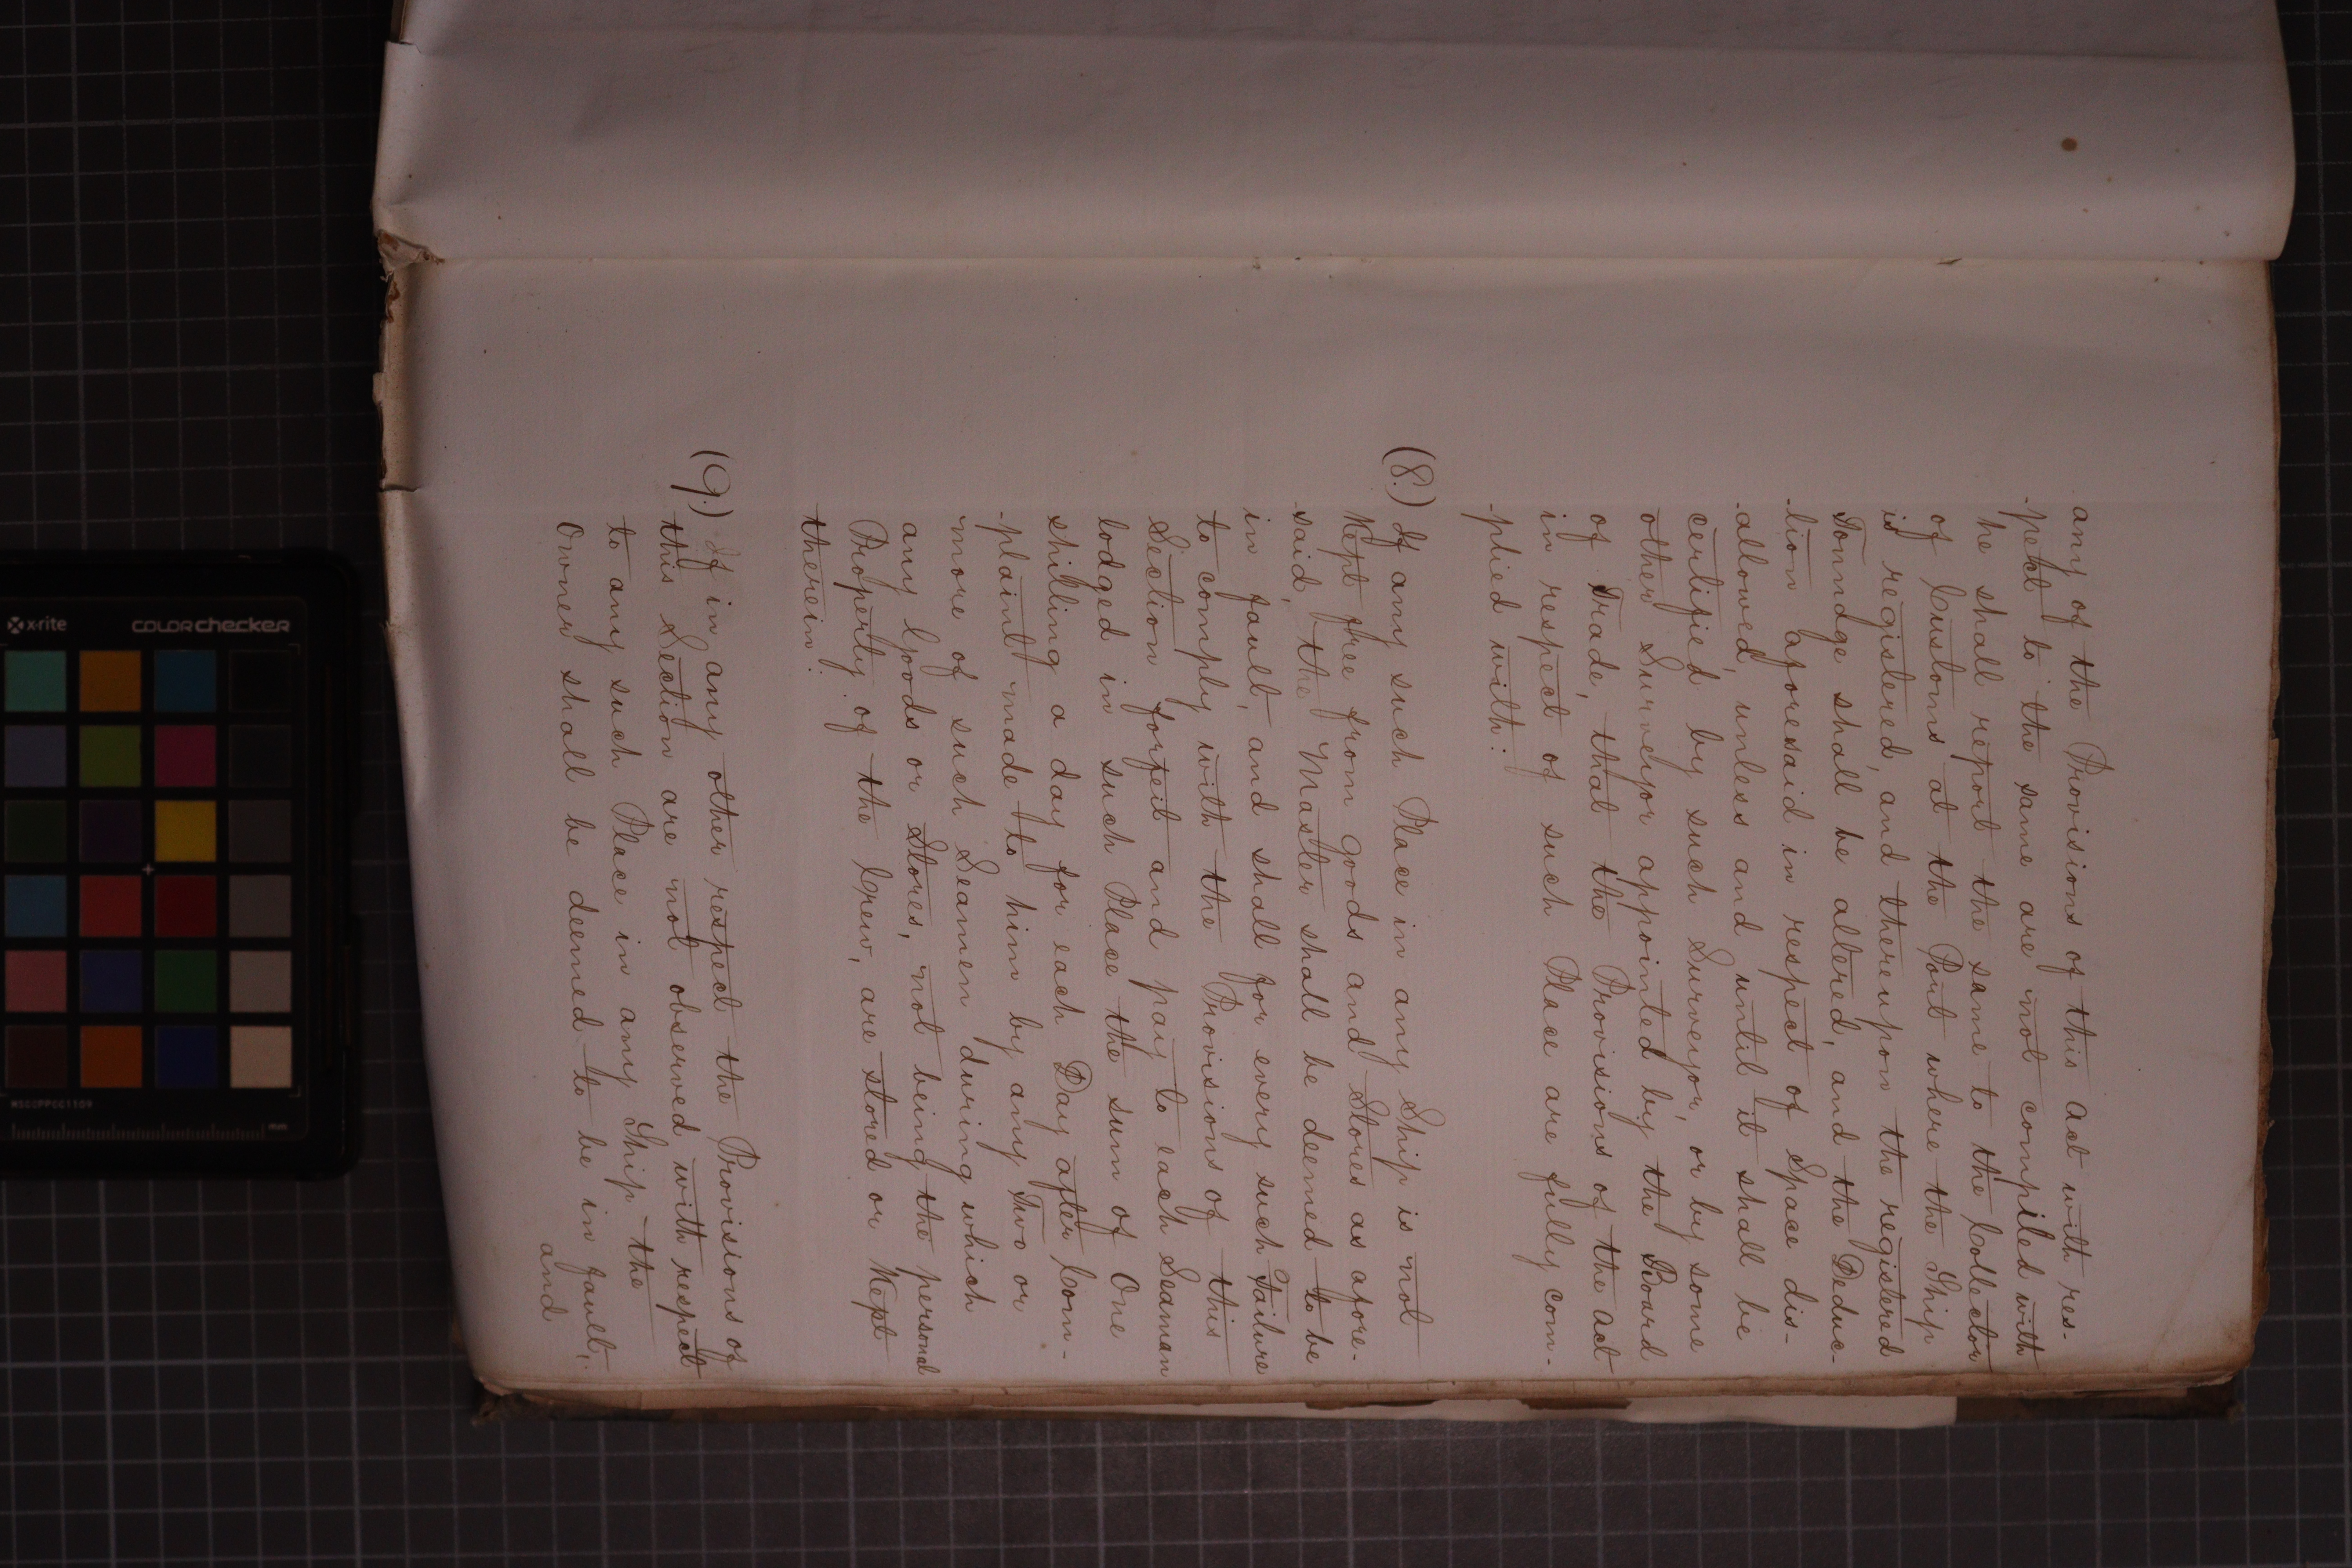 any of the Provisions of this act with res-
-pect to the same are not complied with
he shall report the same to the Collector
of Customs at the Port where the Ship
is registered, and thereupon the registered
Tonnage shall be altered, and the Deduc-
-tion aforesaid in respect of Space dis-
-allowed, unless and until it shall be
certified by such Surveyor, or by some
other Surveyor appointed by the Board
of Trade, that the Provisions of the act
in respect of such Place are fully com-
-plied with:
(8.) If any such Place in any Ship is not
Kept free from goods and Stores as afore-
-said, the Master shall be deemed to be
in fault, and shall for every such Failure
to comply with the Provisions of this
Section forfeit and pay to each Seaman
lodged in such Place the sum of One
shilling a day for each Day after Com-
-plaint made to him by any Two or
more of such Seamen during which
any Goods or Stores, not being the personal
Property of the Crew, are stored or Kept
therein:
(9.) If in any other respect the Provisions of
this Section are not observed with respect
to any such Place in any Ship the
Owner shall be deemed to be in fault,
and
x-rite
COLORchecker
MSCCPPCC1109
mm